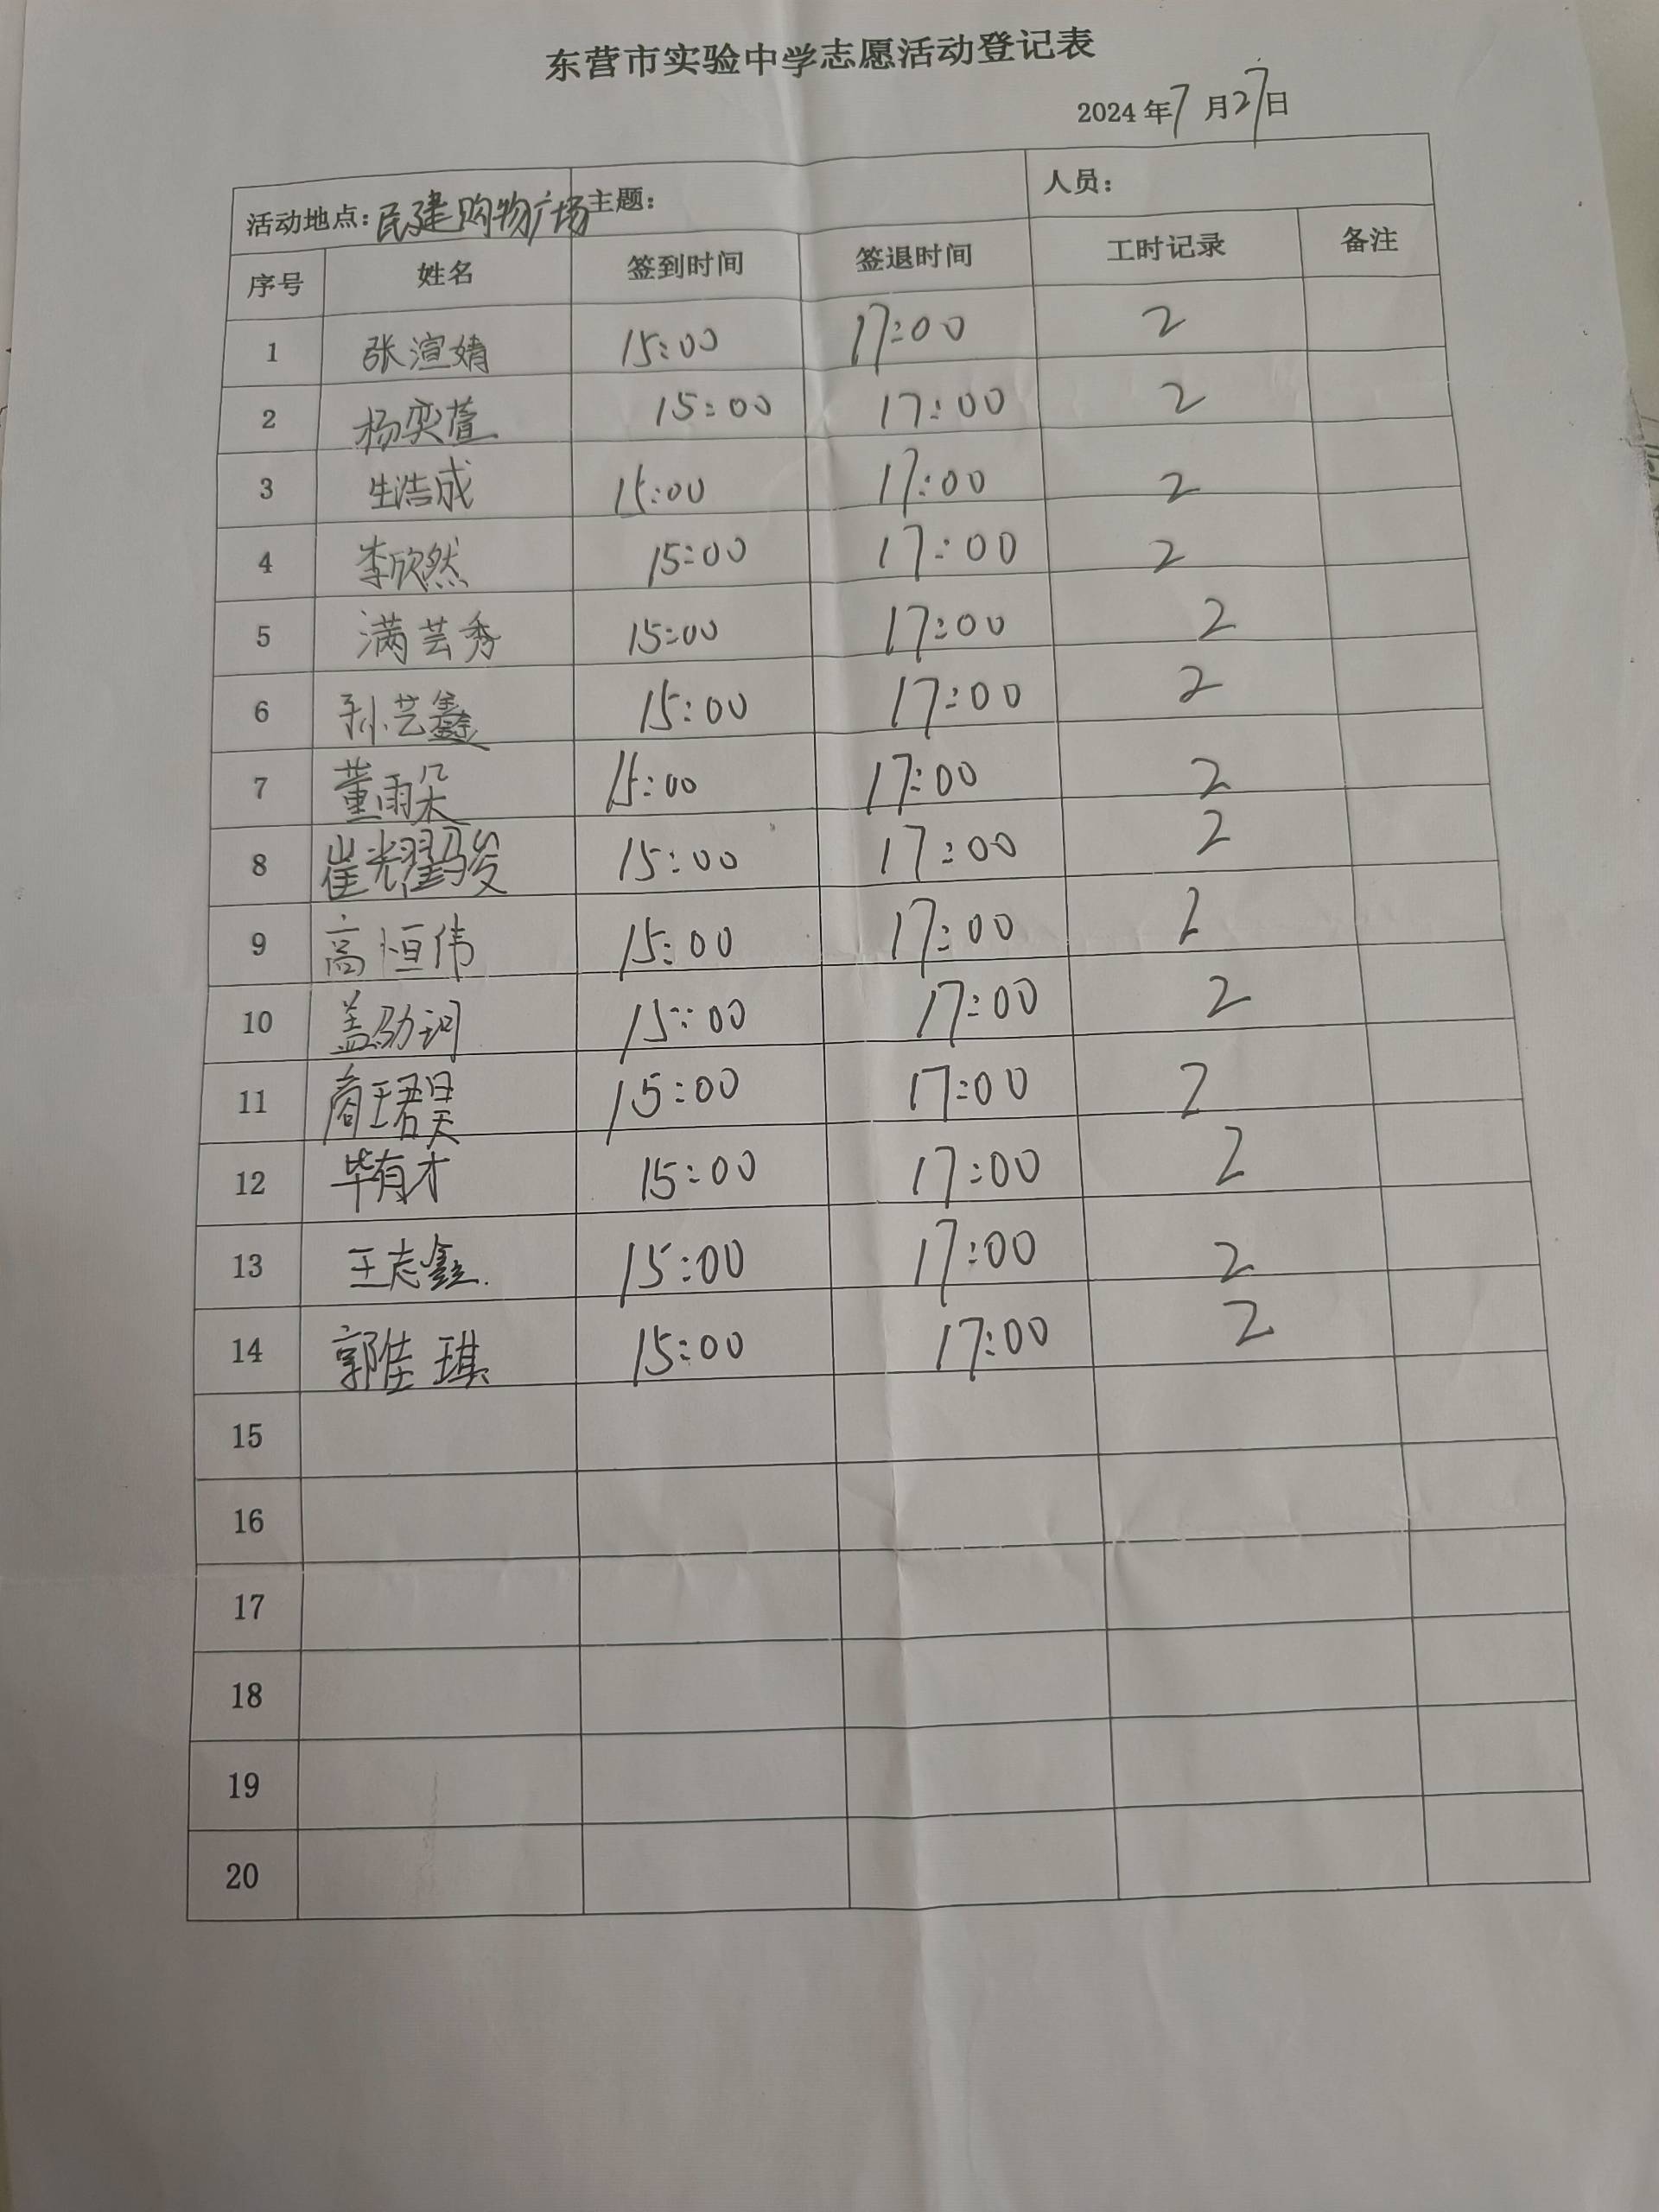 东营市实验中学志愿活动登记表
2024 年 7 月 27 日
活动地点：民建购物广场 主题： 人员：
序号 姓名 签到时间 签退时间 工时记录 备注
1 张渲婧 15:00 17:00 2
2 杨奕萱 15:00 17:00 2
3 生浩成 15:00 17:00 2
4 李欣然 15:00 17:00 2
5 满芸秀 15:00 17:00 2
6 孙艺鑫 15:00 17:00 2
7 董雨朵 15:00 17:00 2
8 崔耀骏 15:00 17:00 2
9 高恒伟 15:00 17:00 2
10 盖劢诃 15:00 17:00 2
11 商珺昊 15:00 17:00 2
12 毕有才 15:00 17:00 2
13 王志鑫. 15:00 17:00 2
14 郭佳琪 15:00 17:00 2
15
16
17
18
19
20